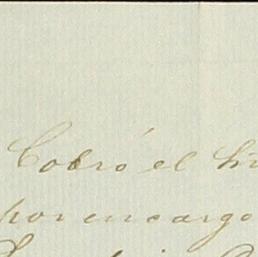 Cobró el
por encargo